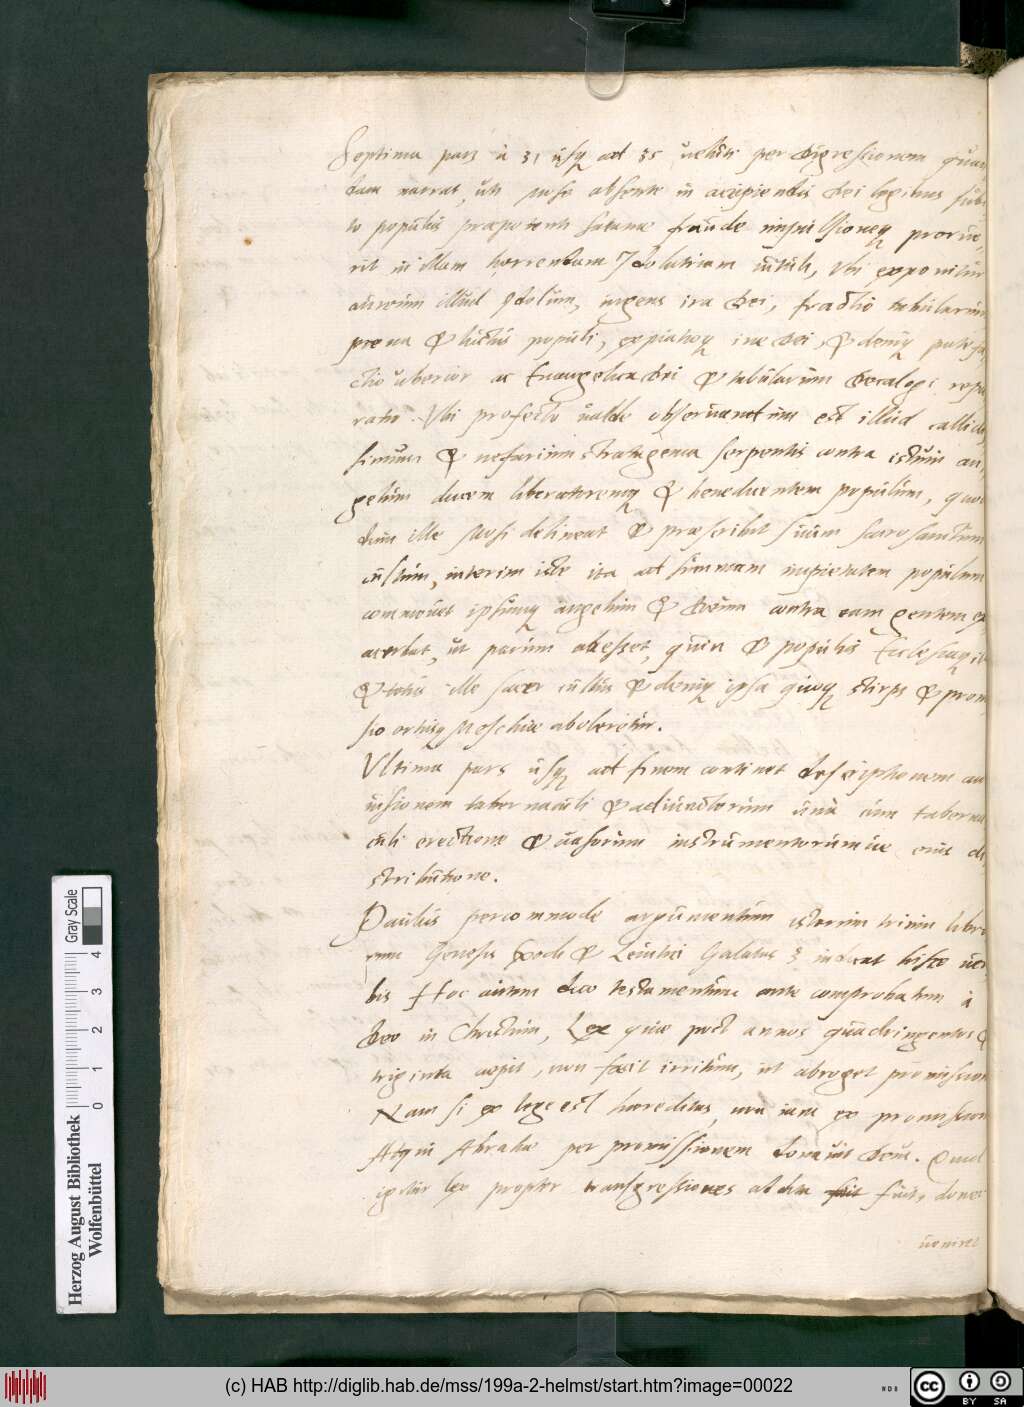 Septima pars à 31 usq ad 35 veluti per digressionem quan
dam narrat, uti Mose absente in accipiendis Dei legibus subi
to populus præpotenti Satanæ fraude impulsioneq prorue
rit in illam horrendam Idolatriam vituli, Ubi exponitur
aureum illud Idolum, ingens ira Dei, fractio tabularum
poena & luctus populi, expiatioq iræ Dei, & deniq patefa
ctio uberior ac Evangelica Dei & tabularum decalogi repa
ratio. Ubi profecto valde observandum est illud callidis
simum & nefarium stratagema serpentis contra istum an
gelum ducem liberatoremq & benedicentem populum, quod
dum ille Mosi delineat & præscribit suum sacrosanctum
cultum, interim iste ita ad summam impietatem populum
commovet ipsumq angelum & Deum contra eam gentem ex
acerbat, ut parum abesset, quin & populus Ecclesiaq
& totus ille sacer cultus & deniq ipsa quoq stirps & promis
sio ortusq Messiæ aboleretur.
Ultima pars usq ad finem continet descriptionem
visionem tabernaculi & adiunctorum una cum taberna
culi erectione & vasorum instrumentorumve eius di
stributione.
Paulus percommode argumentum istorum trium libro
rum Genesis Exodi & Levitici Galatas 3 indicat hisce ver
bis Hoc autem dico testamentum ante comprobatum à
Deo in Christum, Lex quæ post annos quadringentos &
triginta cepit, non facit irritum, ut abroget promission
Nam si ex lege est hæreditas, non iam ex promission
Atqui Abrahæ per promissionem donavit Deus. Quid
igitur lex propter transgressiones addita fuit, donec
veniret
Herzog August Bibliothek
Wolfenbüttel
0 1 2 3 4
Gray Scale
(c) HAB http://diglib.hab.de/mss/199a-2-helmst/start.htm?image=00022
cc BY SA